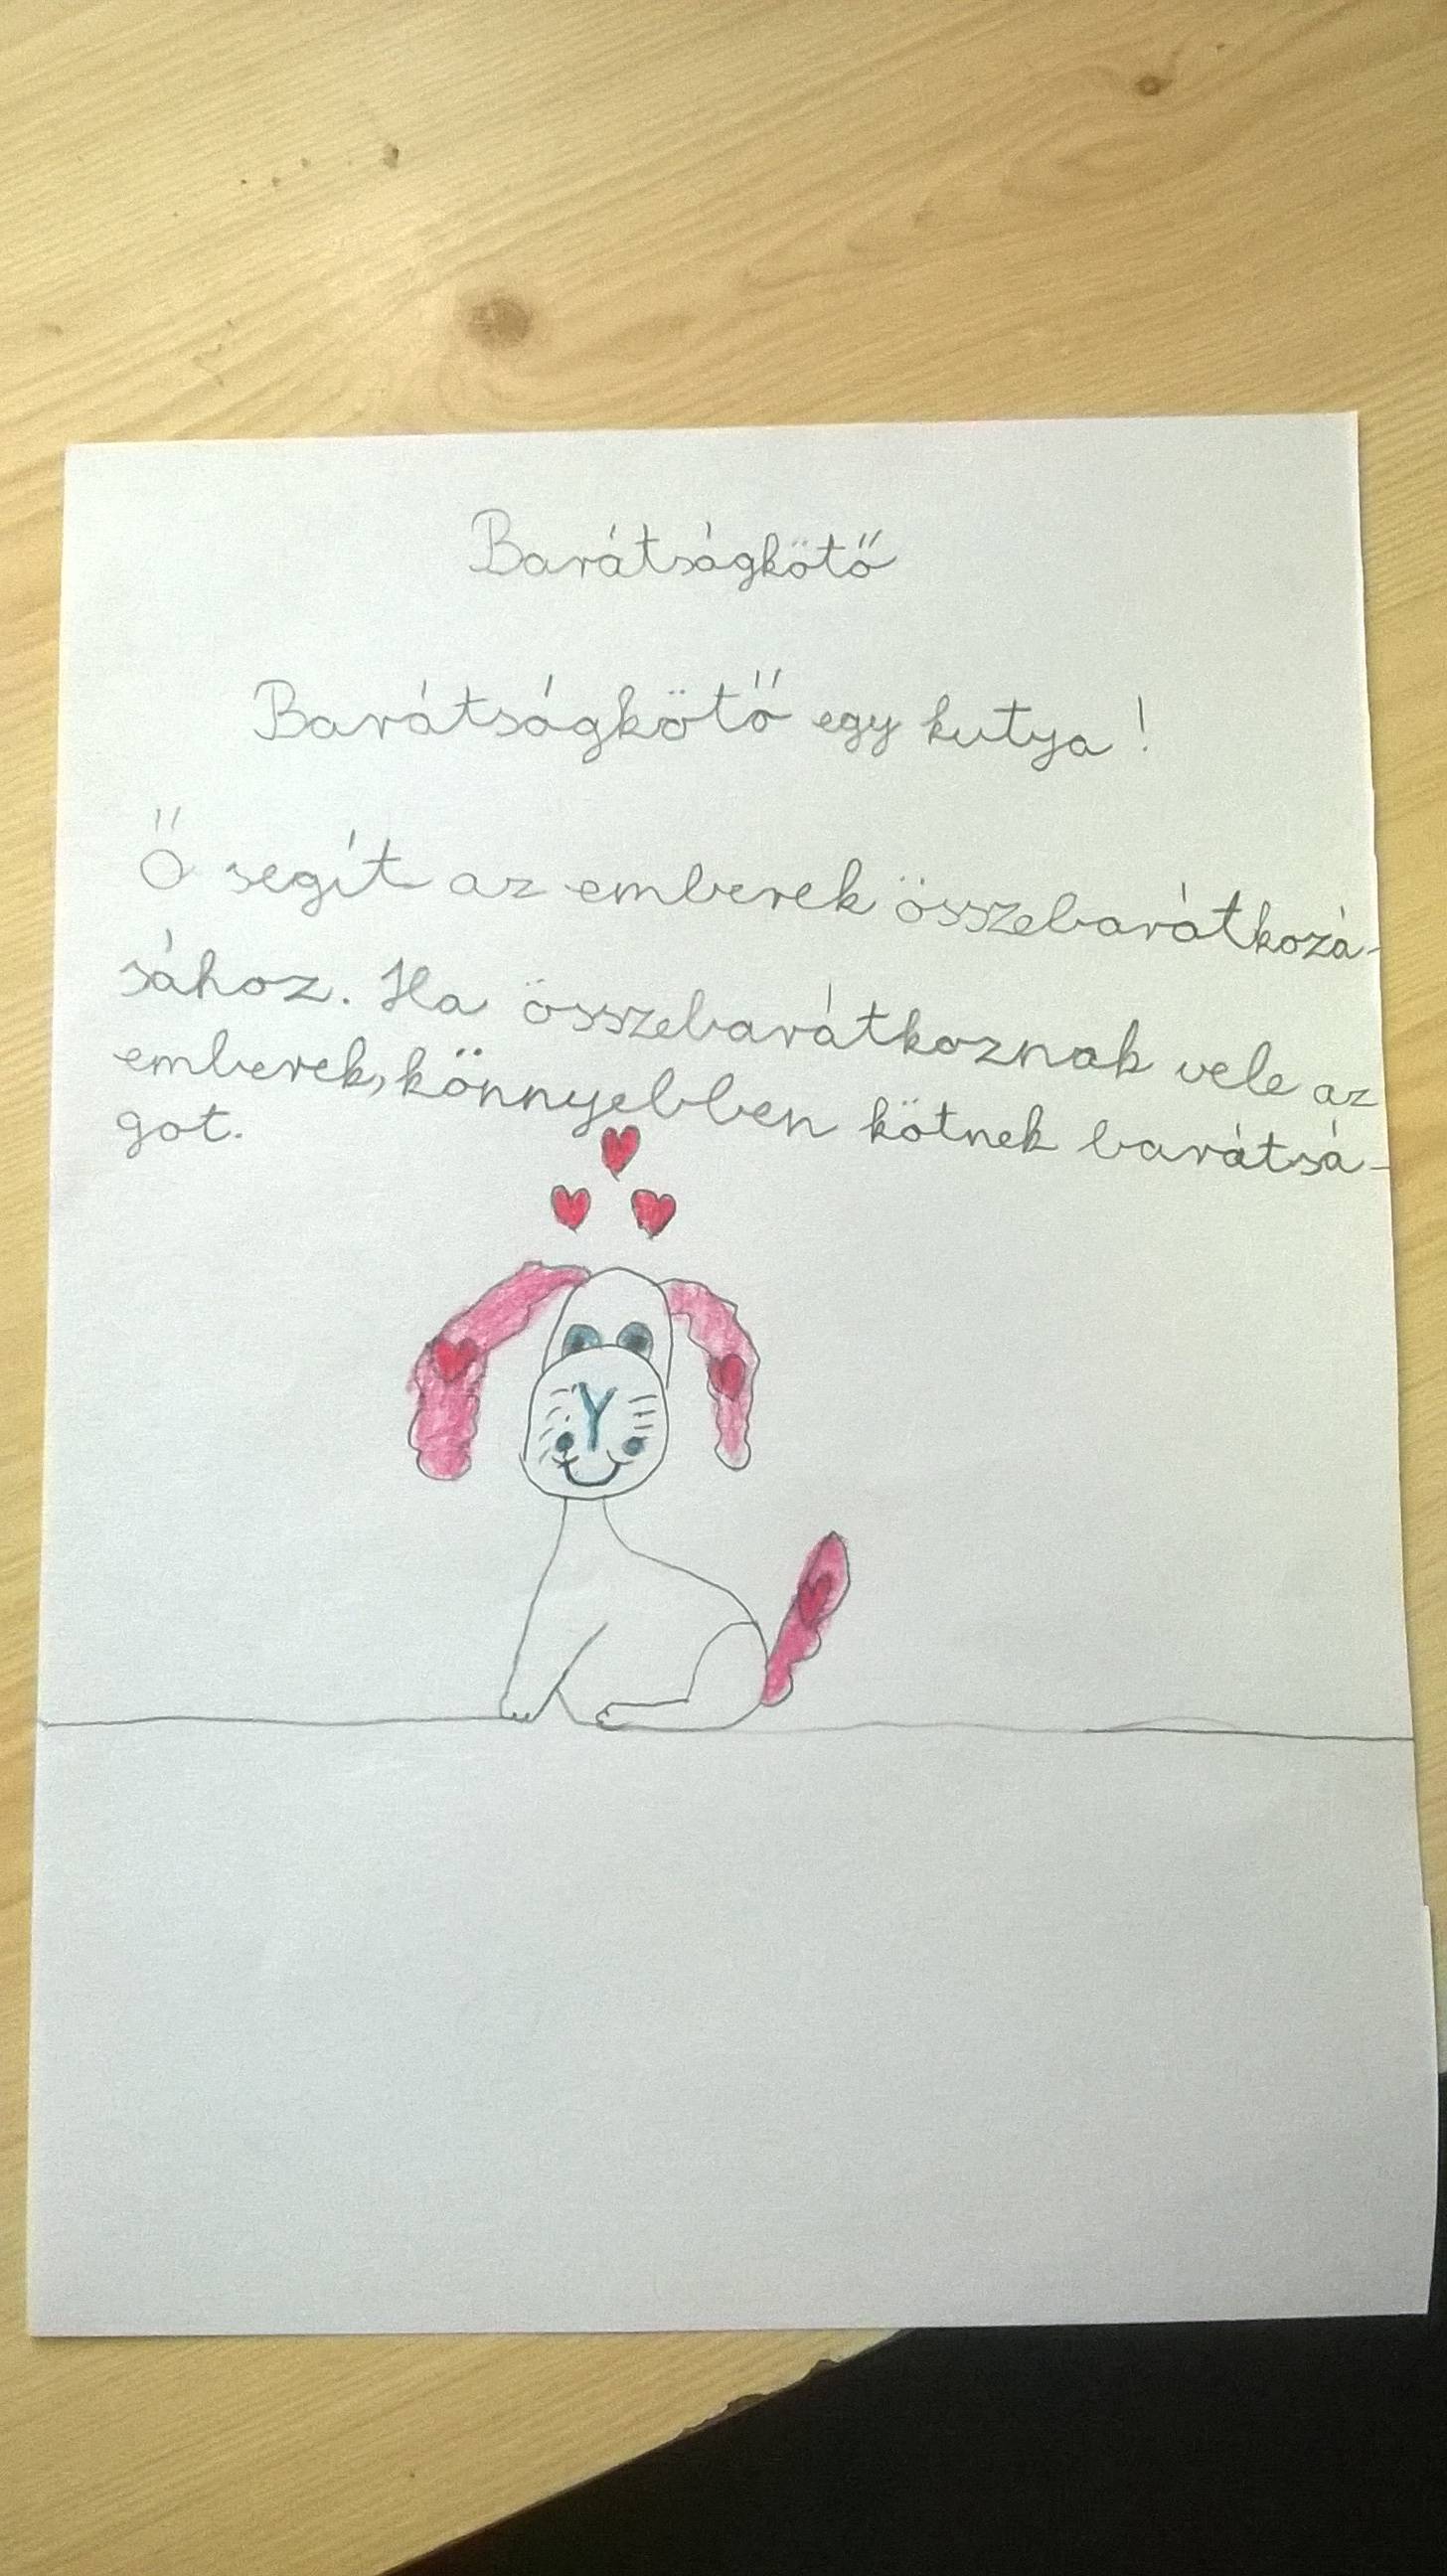 Barátságkötő
Barátságkötő egy kutya!
Ő segít az emberek összebarátkozá-
sához. Ha összebarátkoznak vele az
emberek, könnyebben kötnek barátsá-
got.